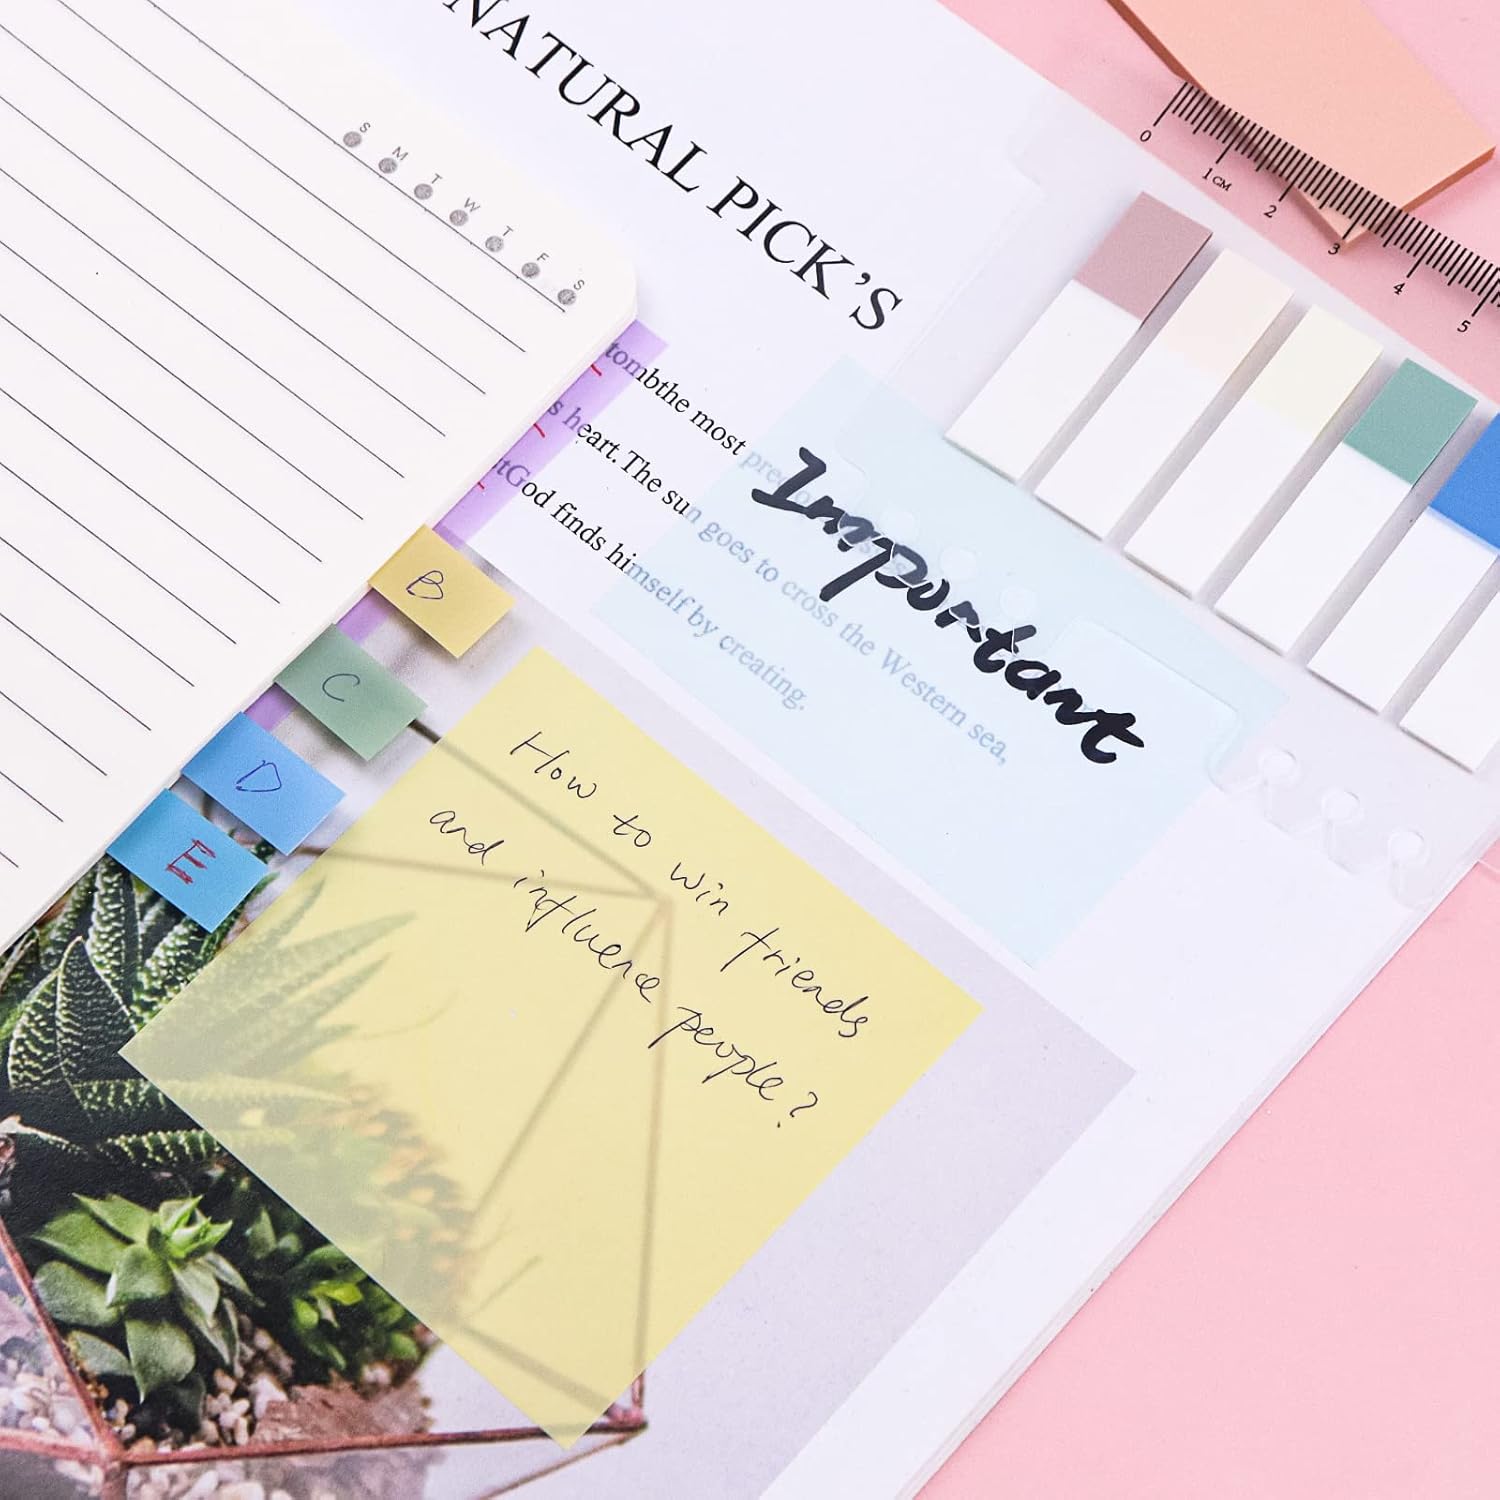 NATURAL PICK'S
S M T W T F S
0 1CM 2 3 4 5
tombthe most
s heart. The sun goes to cross the Western sea,
tGod finds himself by creating.
Important
B
C
D
E
How to win friends
and influence people?